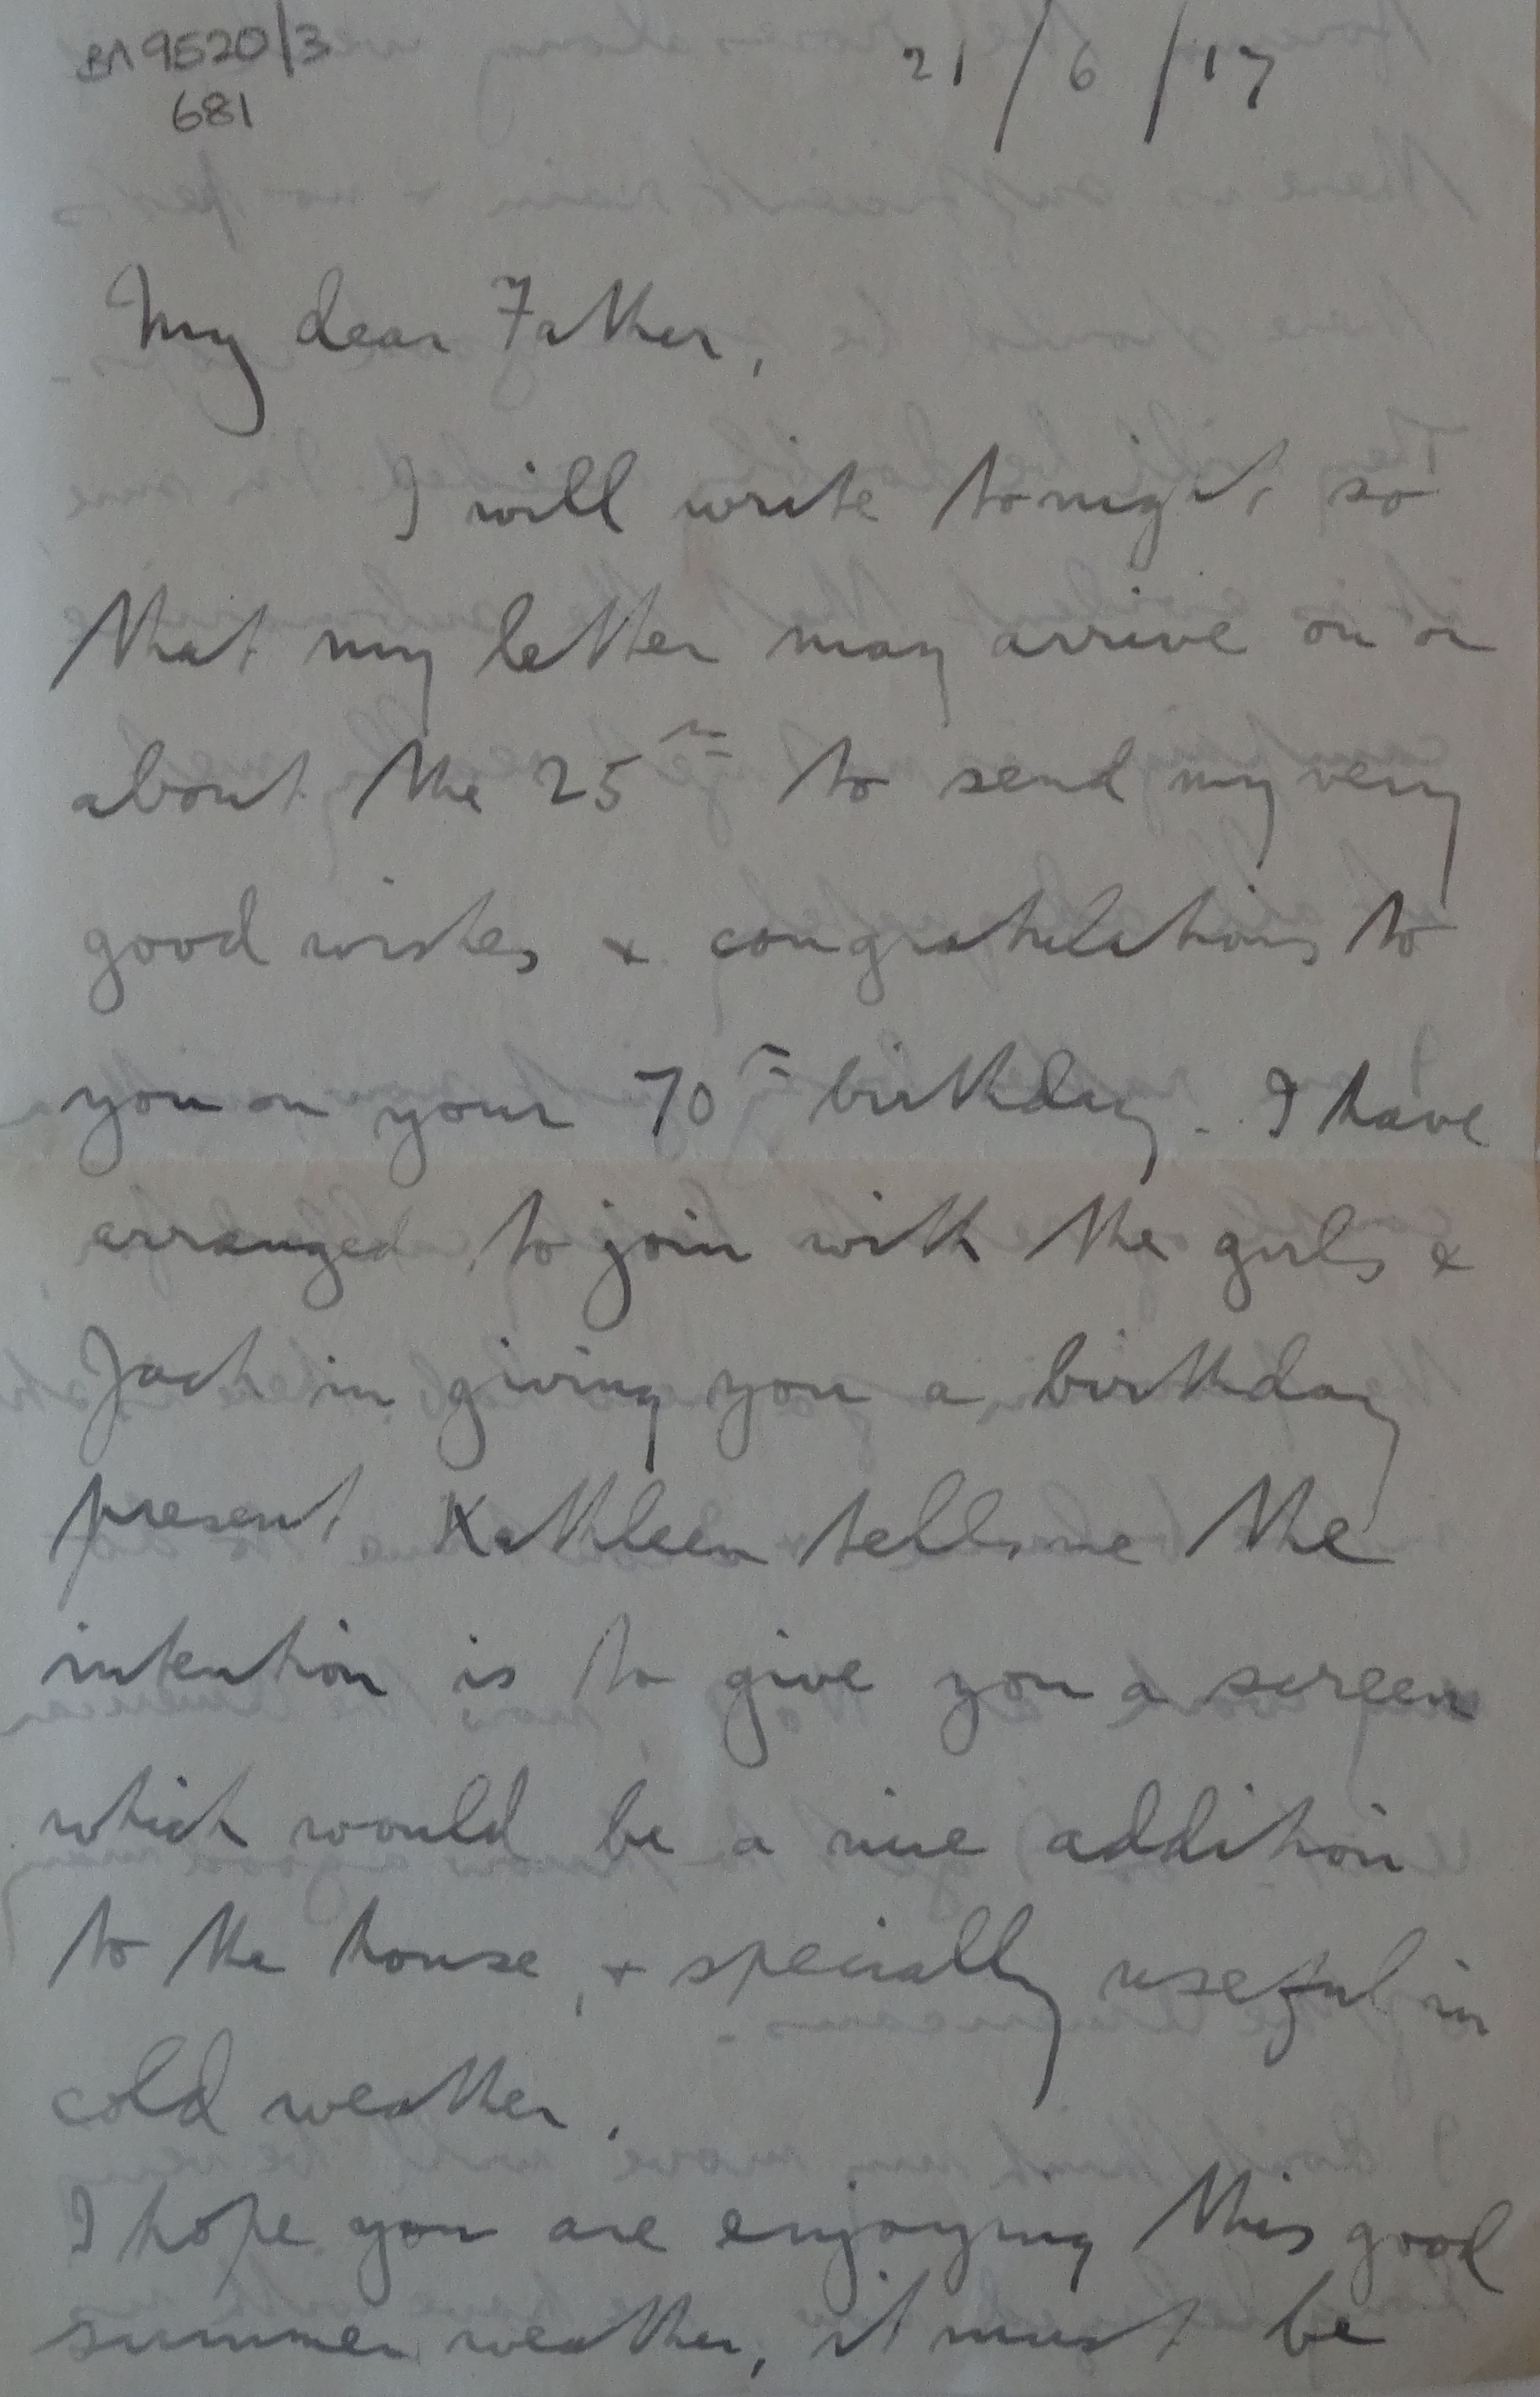 BA 9520/3
681
21/6/17
My dear Father,
I will write tonight so
that my letter may arrive on or
about the 25th to send my very
good wishes & congratulations to
you on your 70th birthday. I have
arranged to join with the girls &
Jack in giving you a birthday
present Kathleen tells me the
intention is to give you a screen
which would be a nice addition
to the house, & specially useful in
cold weather.
I hope you are enjoying this good
summer weather, it must be